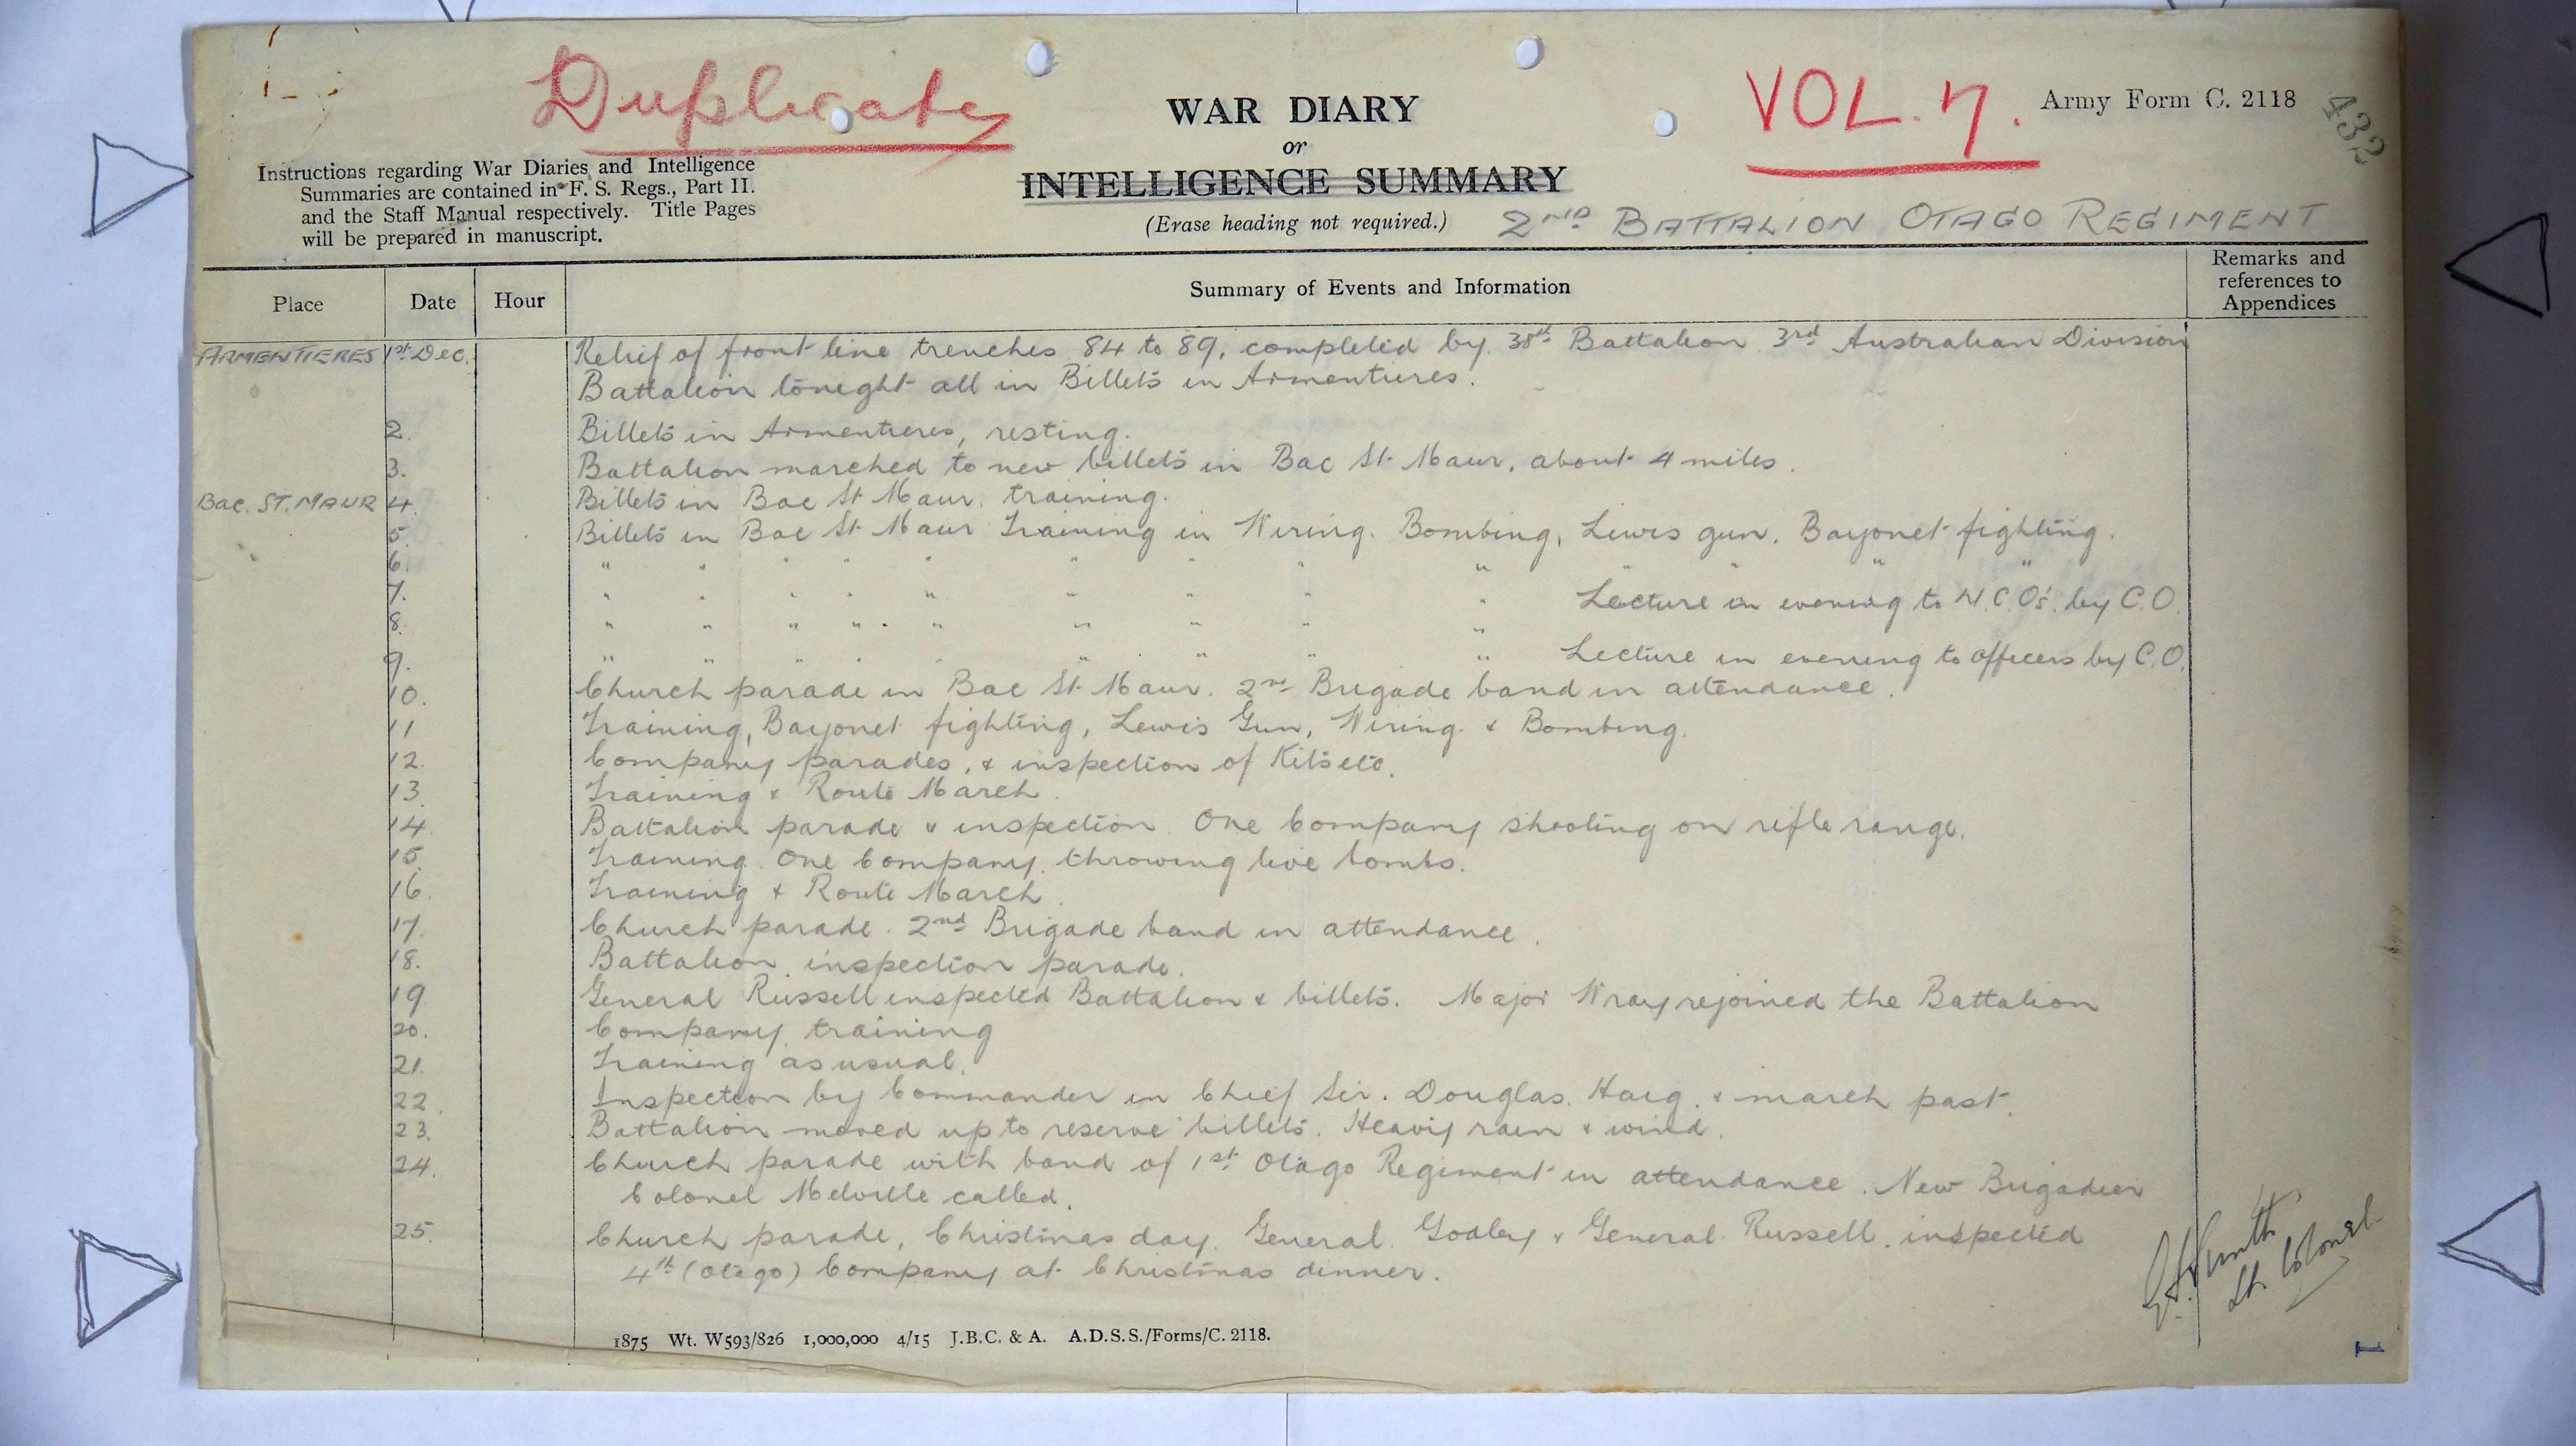 Duplicate
WAR DIARY
or
INTELLIGENCE SUMMARY
(Erase heading not required.)
VOL. 7.
Army Form C. 2118
432
Instructions regarding War Diaries and Intelligence
Summaries are contained in F. S. Regs., Part II.
and the Staff Manual respectively. Title Pages
will be prepared in manuscript.
2ND BATTALION OTAGO REGIMENT
Place Date Hour Summary of Events and Information Remarks and references to Appendices
ARMENTIERES 1st Dec. Relief of front line trenches 84 to 89, completed by 38th Battalion 3rd Australian Division
Battalion tonight all in Billets in Armentieres.
2. Billets in Armentieres, resting.
3. Battalion marched to new billets in Bac St Maur, about 4 miles.
BAC. ST. MAUR 4. Billets in Bac St Maur. training.
5. Billets in Bac St Maur Training in Wiring. Bombing, Lewis gun, Bayonet fighting.
6. " " " " " " " " " " " " "
7. " " " " " " " " " Lecture in evening to N.C.O's. by C.O.
8. " " " " " " " " "
9. " " " " " " " " " Lecture in evening to officers by C.O.
10. Church parade in Bac St Maur. 2nd Brigade band in attendance.
11 Training, Bayonet fighting, Lewis Gun, Wiring & Bombing.
12. Company parades, & inspection of Kits etc.
13. Training & Route March.
14. Battalion parade & inspection. One Company shooting on rifle range.
15. Training. One Company throwing live bombs.
16. Training & Route March.
17. Church parade. 2nd Brigade band in attendance.
18. Battalion inspection parade.
19. General Russell inspected Battalion & billets. Major Wray rejoined the Battalion
20. Company training
21. Training as usual.
22. Inspection by Commander in Chief Sir. Douglas. Haig. & march past.
23. Battalion moved up to reserve billets. Heavy rain & wind.
24. Church parade with band of 1st Otago Regiment in attendance. New Brigadier
Colonel Melville called.
25. Church parade, Christmas day. General. Godley & General. Russell. inspected
4th (Otago) Company at Christmas dinner.
Smith
Lt. Colonel
1875 Wt. W593/826 1,000,000 4/15 J.B.C. & A. A.D.S.S./Forms/C. 2118.
1